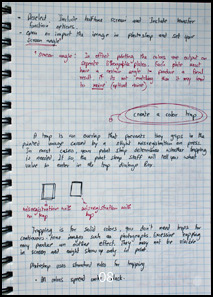 • Deselect Include halftone screen and Include transfer
functions options.
• Open or import the image in photoshop and set your
screen angle*
* Screen angle: In offset printing the colors are output on
separate lithographic plates. Each plate must
have a screen angle to produce a final
print. If it is not matching then it may lead
to moire (optical noise).
Create a color trap
A trap is an overlap that prevents tiny gaps in the
printed image caused by a slight misregistration on press.
In most cases, your print shop determines whether trapping
is needed. If so, the print shop staff will tell you what
value to enter in the color dialog box.
misregistration with
no trap
misregistration with
trap
Trapping is for solid colors. You don't need traps for
continuous-tone images such as photographs. Excessive trapping
may produce an outline effect. They may not be visible
on screen and might show up only in print.
Photoshop uses standard rules for trapping
- All colors spread under black.
08